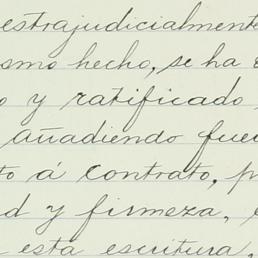 estrajudicialmente
smo hecho, se ha
o y ratificado
añadiendo fue
to á contrato, p
d y firmeza, e
a esta escritura,